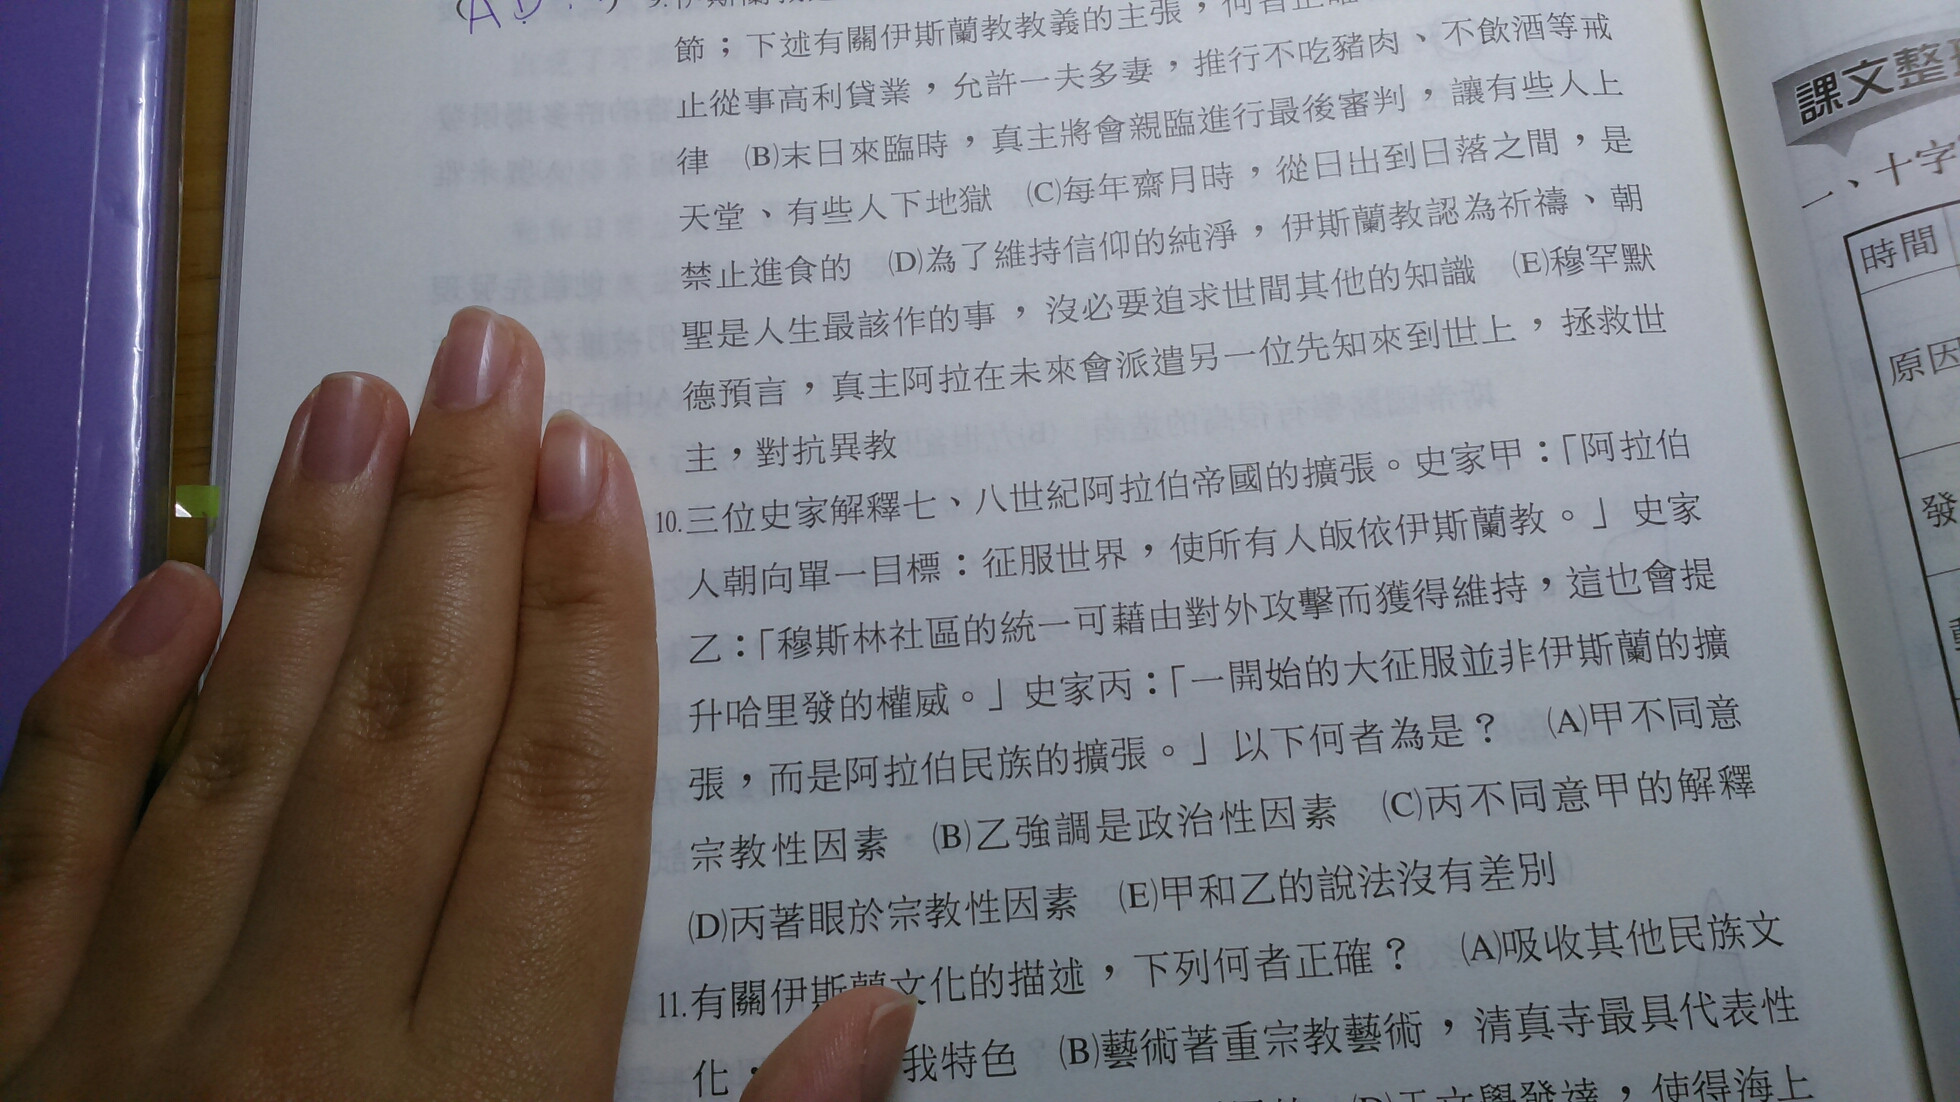 節；下述有關伊斯蘭教教義的主張，何者正
止從事高利貸業，允許一夫多妻，推行不吃豬肉、不飲酒等戒
律　(B)末日來臨時，真主將會親臨進行最後審判，讓有些人上
天堂、有些人下地獄　(C)每年齋月時，從日出到日落之間，是
禁止進食的　(D)為了維持信仰的純淨，伊斯蘭教認為祈禱、朝
聖是人生最該作的事，沒必要追求世間其他的知識　(E)穆罕默
德預言，真主阿拉在未來會派遣另一位先知來到世上，拯救世
主，對抗異教
10.三位史家解釋七、八世紀阿拉伯帝國的擴張。史家甲：「阿拉伯
人朝向單一目標：征服世界，使所有人皈依伊斯蘭教。」史家
乙：「穆斯林社區的統一可藉由對外攻擊而獲得維持，這也會提
升哈里發的權威。」史家丙：「一開始的大征服並非伊斯蘭的擴
張，而是阿拉伯民族的擴張。」以下何者為是？　(A)甲不同意
宗教性因素　(B)乙強調是政治性因素　(C)丙不同意甲的解釋
(D)丙著眼於宗教性因素　(E)甲和乙的說法沒有差別
11.有關伊斯蘭文化的描述，下列何者正確？　(A)吸收其他民族文
化，我特色　(B)藝術著重宗教藝術，清真寺最具代表性
(D)天文學發達，使得海上
課文整
一、十字
時間
原因
發